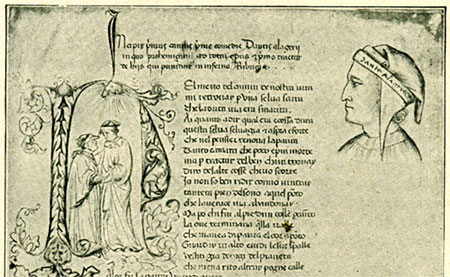 Incipit primus cantus prime comedie Dantis alagerij
in quo prohemiçatur ad totum opus et primo tractat
de hijs qui puniuntur in inferno Rubrica
Dante
El meço del camin de nostra vita
mi retrovai p una selva scura
che la via era smarita
Ai quanto a dir qual era cossa dura
questa selva selvagia e aspra e forte
che nel pensier renova la paura
Tanto e amara che poco e piu morte
ma p tractar del ben chui trovay
diro del altre cosse chio scorte
Io non so ben redir comio vintray
tant era pien de sono a quel
che la verace via abandonay
Ma po chi fui al pie dun colle
la terminava valle
che mavea di paura el cor
Guardai in alto e vidi le sue spalle
vestite gia de raggi del pianeta
che mena rito altrui p ogne calle